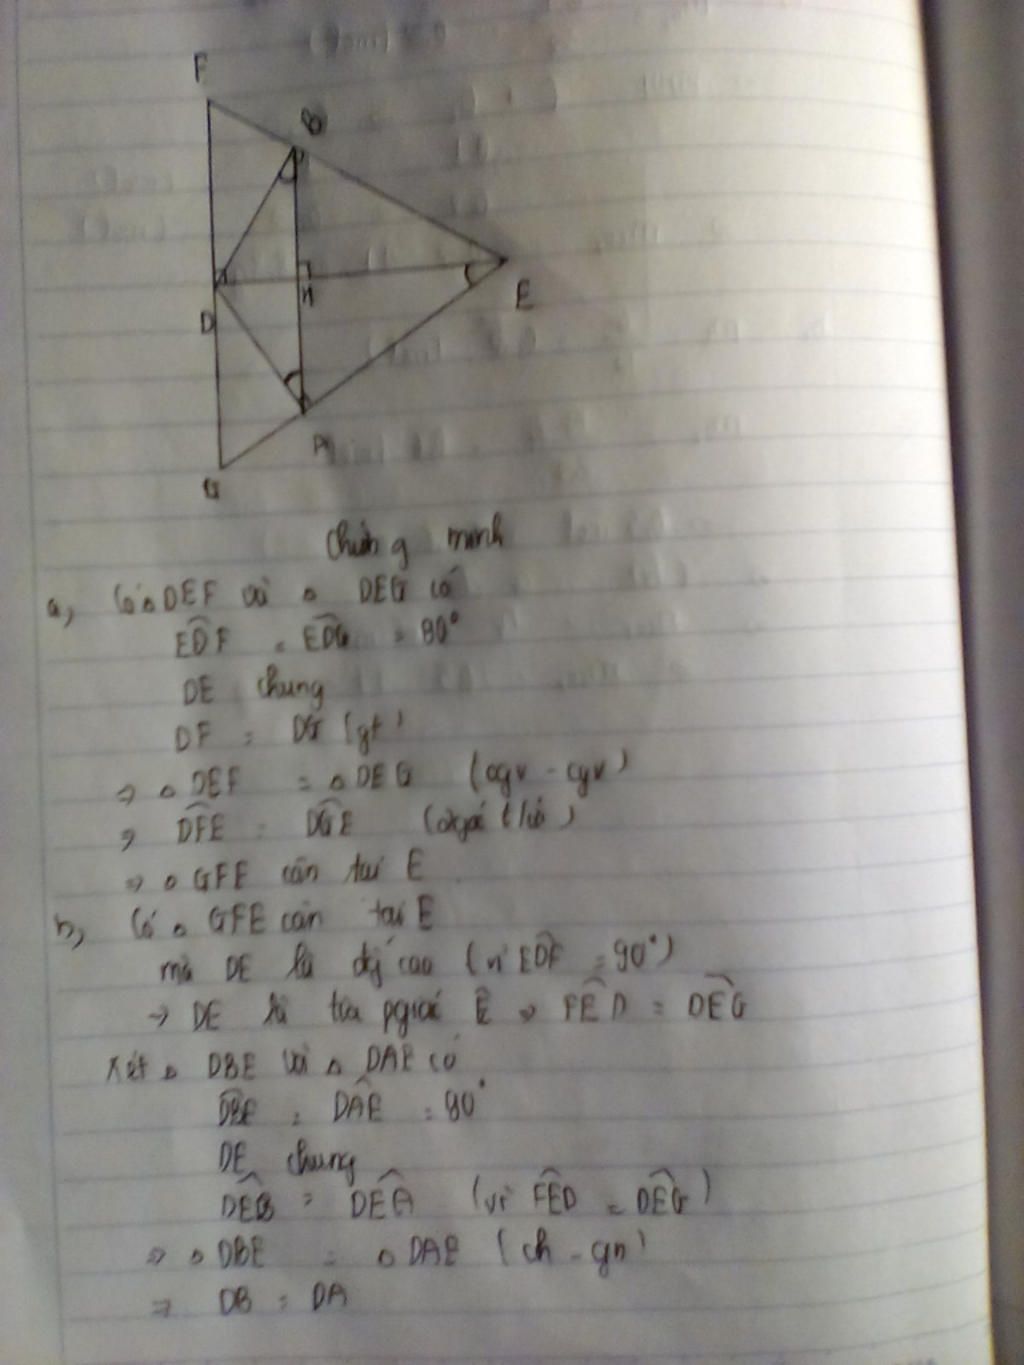 F
B
H
E
D
A
G
Chứng minh
a, Có △ DEF và △ DEG có
EDF = EDG = 90°
DE chung
DF = DG (gt)
=> △ DEF = △ DEG (cgv - cgv)
=> DFE = DGE
=> △ GFE cân tại E
b, Có △ GFE cân tại E
mà DE là đg cao (vì EDF = 90°)
-> DE là tia pgiác Ê => FED = DEG
Xét △ DBE và △ DAE có
DBE = DAE = 90°
DE chung
DEB = DEA (vì FED = DEG)
=> △ DBE = △ DAE (ch - gn)
=> DB = DA